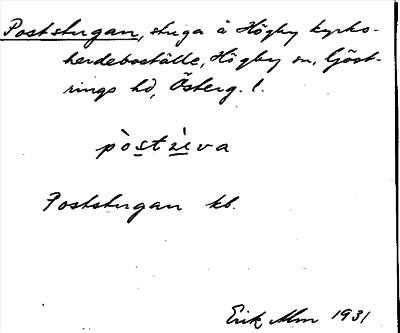 Poststugan, stuga å Högby kyrko-
herdeboställe, Högby sn, Göst-
rings hd, Österg. l.
pòstz̀ìva
Poststugan kb.
Erik Alm 1931